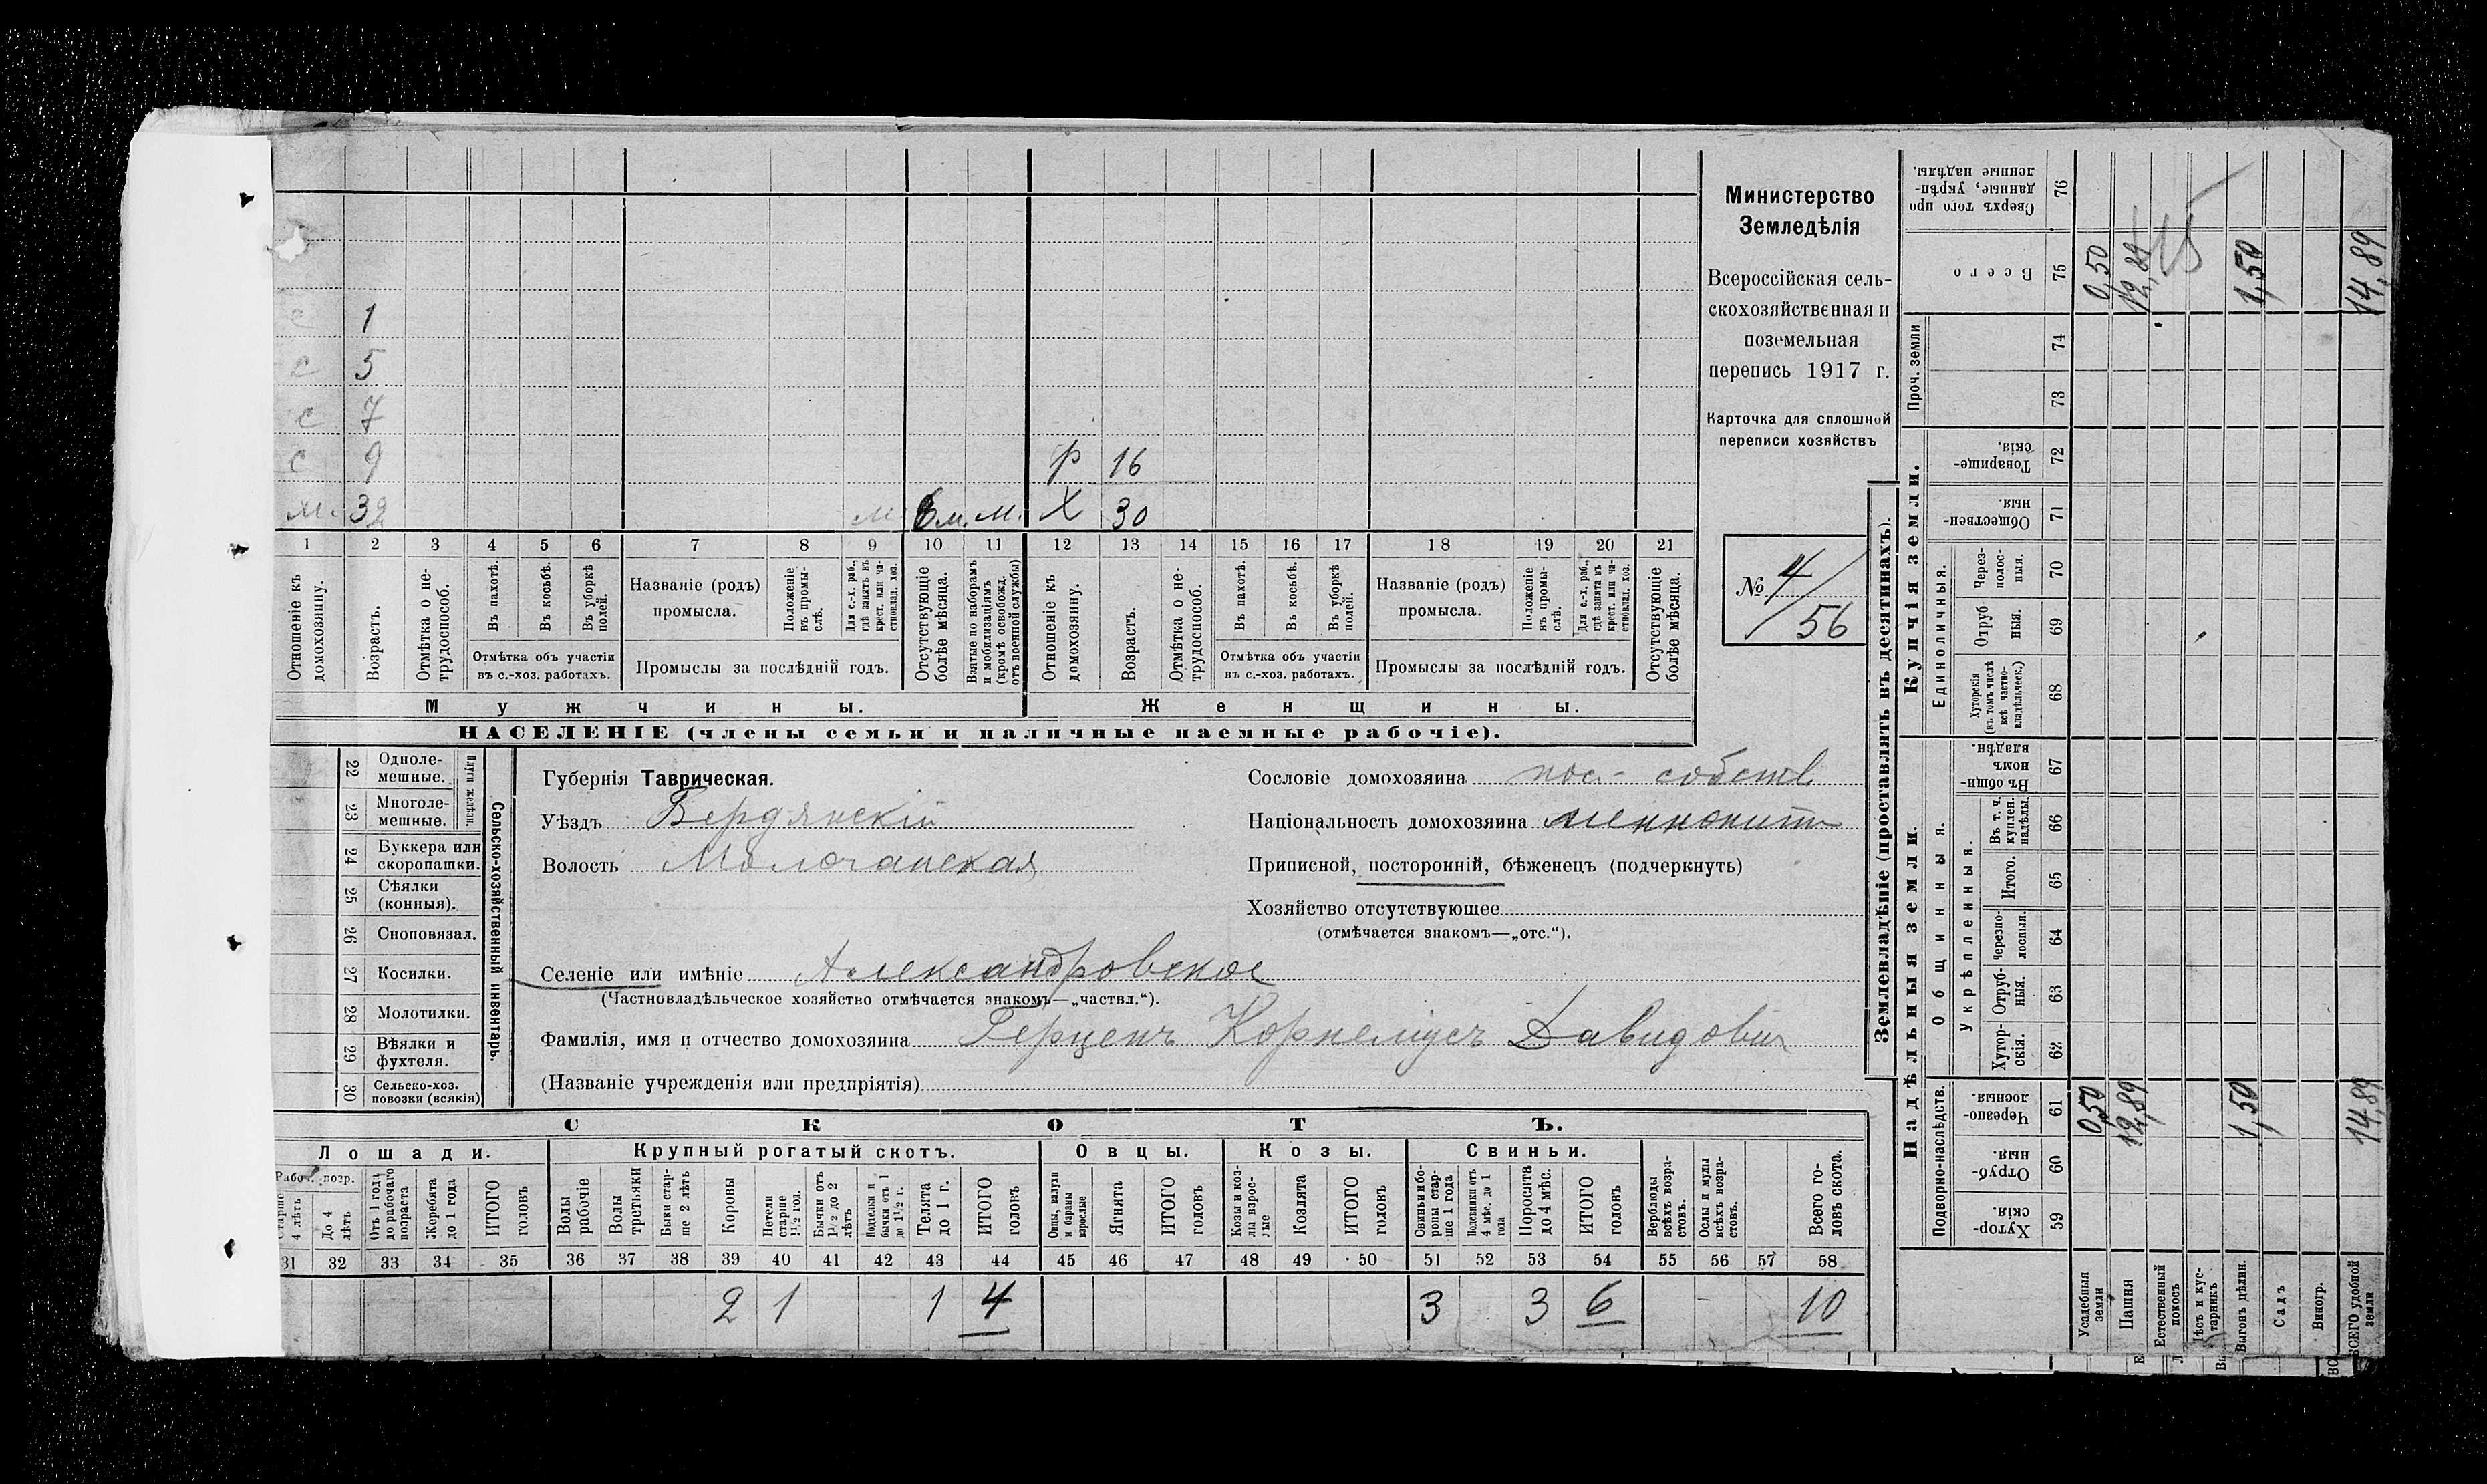 с 1
с 5
с 7
с 9 р 16
м. 32 м 6 м. м. Х 30
1 2 3 4 5 6 7 8 9 10 11 12 13 14 15 16 17 18 19 20 21
Отношеніе къ домохозяину.
Возрастъ.
Отмѣтка о не-трудоспособ.
Въ пахотѣ.
Въ косьбѣ.
Въ уборкѣ полей.
Отмѣтка объ участіи
въ с.-хоз. работахъ.
Названіе (родъ)
промысла.
Положеніе въ промы-слѣ.
Для с.-х. раб., гдѣ занятъ въ крест. или ча-стновлад. хоз.
Промыслы за послѣдній годъ.
Отсутствующіе болѣе мѣсяца.
Взятые по наборамъ и мобилизаціямъ (кромѣ освобожд. отъ военной службы)
Отношеніе къ домохозяину.
Возрастъ.
Отмѣтка о не-трудоспособ.
Въ пахотѣ.
Въ косьбѣ.
Въ уборкѣ полей.
Отмѣтка объ участіи
въ с.-хоз. работахъ.
Названіе (родъ)
промысла.
Положеніе въ промы-слѣ.
Для с.-х. раб., гдѣ занята въ крест. или ча-стновлад. хоз.
Промыслы за послѣдній годъ.
Отсутствующіе болѣе мѣсяца.
Мужчины. Женщины.
НАСЕЛЕНІЕ (члены семьи и наличные наемные рабочіе).
Министерство
Земледѣлія
Всероссійская сель-
скохозяйственная и
поземельная
перепись 1917 г.
Карточка для сплошной
переписи хозяйствъ
№ 4/56
22 Одноле-мешные.
23 Многоле-мешные.
Плуги желѣзн.
24 Буккера или скоропашки.
25 Сѣялки (конныя).
26 Сноповязал.
27 Косилки.
28 Молотилки.
29 Вѣялки и фухтеля.
30 Сельско-хоз. повозки (всякія)
Сельско-хозяйственный инвентарь.
Губернія Таврическая.
Уѣздъ Бердянскій
Волость Молочанская
Сословіе домохозяина пос.- собств
Національность домохозяина меннонитъ
Приписной, посторонній, бѣженецъ (подчеркнуть)
Хозяйство отсутствующее
(отмѣчается знакомъ—„отс.“).
Селеніе или имѣніе Александровское
(Частновладѣльческое хозяйство отмѣчается знакомъ—„частвл.“).
Фамилія, имя и отчество домохозяина Герценъ Корнеліусъ Давидовичъ
(Названіе учрежденія или предпріятія)
СКОТЪ.
Лошади. Крупный рогатый скотъ. Овцы. Козы. Свиньи.
Рабоч. возр.
Старше 4 лѣтъ
До 4 лѣтъ
Отъ 1 года до рабочаго возраста
Жеребята до 1 года
ИТОГО головъ
Волы рабочіе
Волы третьяки
Быки стар-ше 2 лѣтъ
Коровы
Нетели старше 1 1/2 год.
Бычки отъ 1 1/2 до 2 лѣтъ
Подтелки и бычки отъ 1 до 1 1/2 г.
Телята до 1 г.
ИТОГО головъ
Овцы, валухи и бараны взрослые
Ягнята
ИТОГО головъ
Козы и коз-лы взрос-лые
Козлята
ИТОГО головъ
Свиньи и бо-роны стар-ше 1 года
Подсвинки отъ 4 мѣс. до 1 года
Поросята до 4 мѣс.
ИТОГО головъ
Верблюды всѣхъ возра-стовъ.
Ослы и мулы всѣхъ возра-стовъ.
Всего го-ловъ скота.
31 32 33 34 35 36 37 38 39 40 41 42 43 44 45 46 47 48 49 50 51 52 53 54 55 56 57 58
2 1 1 4 3 3 6 10
Землевладѣніе (проставлять въ десятинахъ).
Надѣльныя земли. Купчія земли. Проч. земли
Подворно-наслѣдств. Общинныя. Единоличныя.
Укрѣпленныя.
Хутор-скія. 59
Отруб-ныя. 60
Черезпо-лосныя. 61
Хутор-скія. 62
Отруб-ныя. 63
Черезпо-лосныя. 64
Итого. 65
Въ т. ч. куплен. надѣлы. 66
Въ общин-номъ владѣн. 67
Хуторскія (въ томъ числѣ всѣ частно-владѣльческ.) 68
Отрубныя. 69
Через-полос-ныя. 70
Обществен-ныя. 71
Товарище-скія. 72
73
74
Всего 75
Сверхъ того про-данные, укрѣп-ленные надѣлы. 76
Усадебныя земли 0,50 0,50
Пашня 12,89 12,89
Естественный покосъ
Лѣсъ и кус-тарникъ
Выгонъ дѣлин. 1,50 1,50
Садъ
Виногр.
ВСЕГО удобной земли 14,89 14,89
15